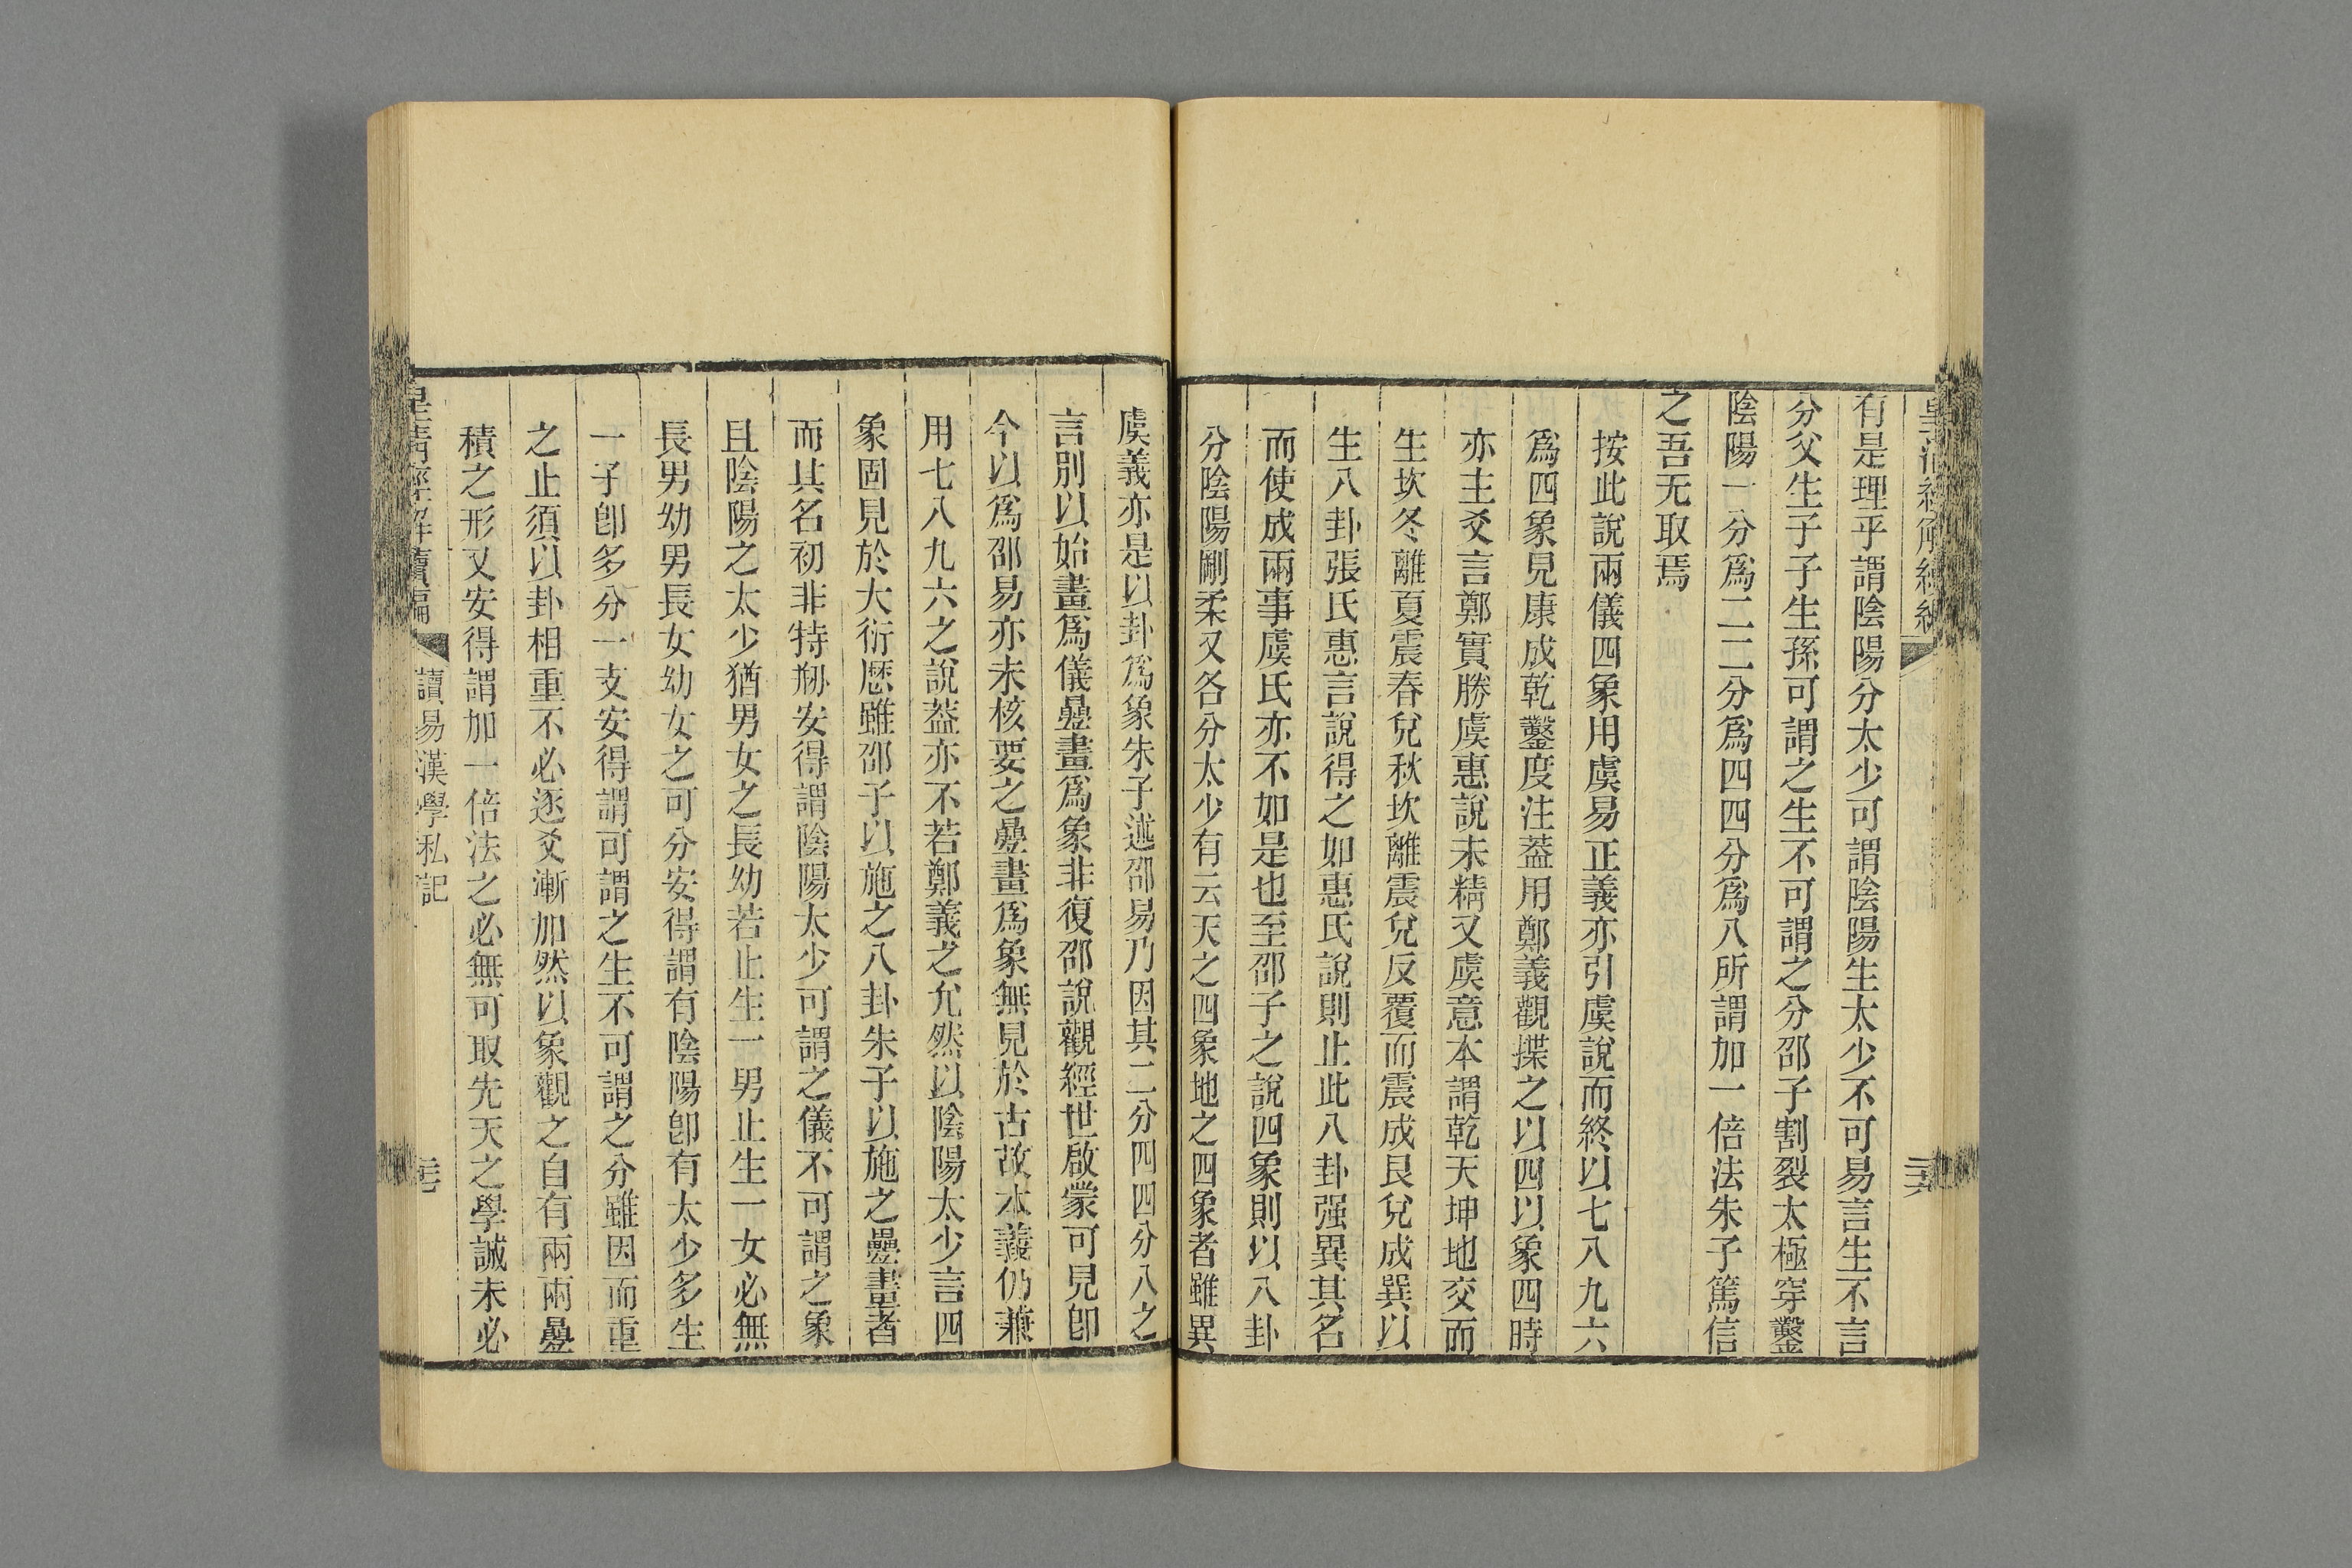 有是理乎謂陰陽分太少可謂陰陽生太少不可易言生不言
分父生子子生孫可謂之生不可謂之分邵子割裂太極穿鑿
陰陽一分爲二二分爲四四分爲八所謂加一倍法朱子篤信
之吾无取焉
按此說兩儀四象用虞易正義亦引虞說而終以七八九六
爲四象見康成乾鑿度注葢用鄭義觀揲之以四以象四時
亦主爻言鄭實勝虞惠說未精又虞意本謂乾天坤地交而
生坎冬離夏震春兌秋坎離震兌反覆而震成艮兌成巽以
生八卦張氏惠言說得之如惠氏說則止此八卦强異其名
而使成兩事虞氏亦不如是也至邵子之說四象則以八卦
分陰陽剛柔又各分太少有云天之四象地之四象者雖異
虞義亦是以卦爲象朱子述邵易乃因其二分四四分八之
言別以始畫爲儀疊畫爲象非復邵說觀經世啟蒙可見卽
今以爲邵易亦未核要之疊畫爲象無見於古故本義仍兼
用七八九六之說葢亦不若鄭義之允然以陰陽太少言四
象固見於大衍厯雖邵子以施之八卦朱子以施之疊畫者
而其名初非特剏安得謂陰陽太少可謂之儀不可謂之象
且陰陽之太少猶男女之長幼若止生一男止生一女必無
長男幼男長女幼女之可分安得謂有陰陽卽有太少多生
一子卽多分一支安得謂可謂之生不可謂之分雖因而重
之止須以卦相重不必逐爻漸加然以象觀之自有兩兩疊
積之形又安得謂加一倍法之必無可取先天之學誠未必
皇清經解續編
讀易漢學私記